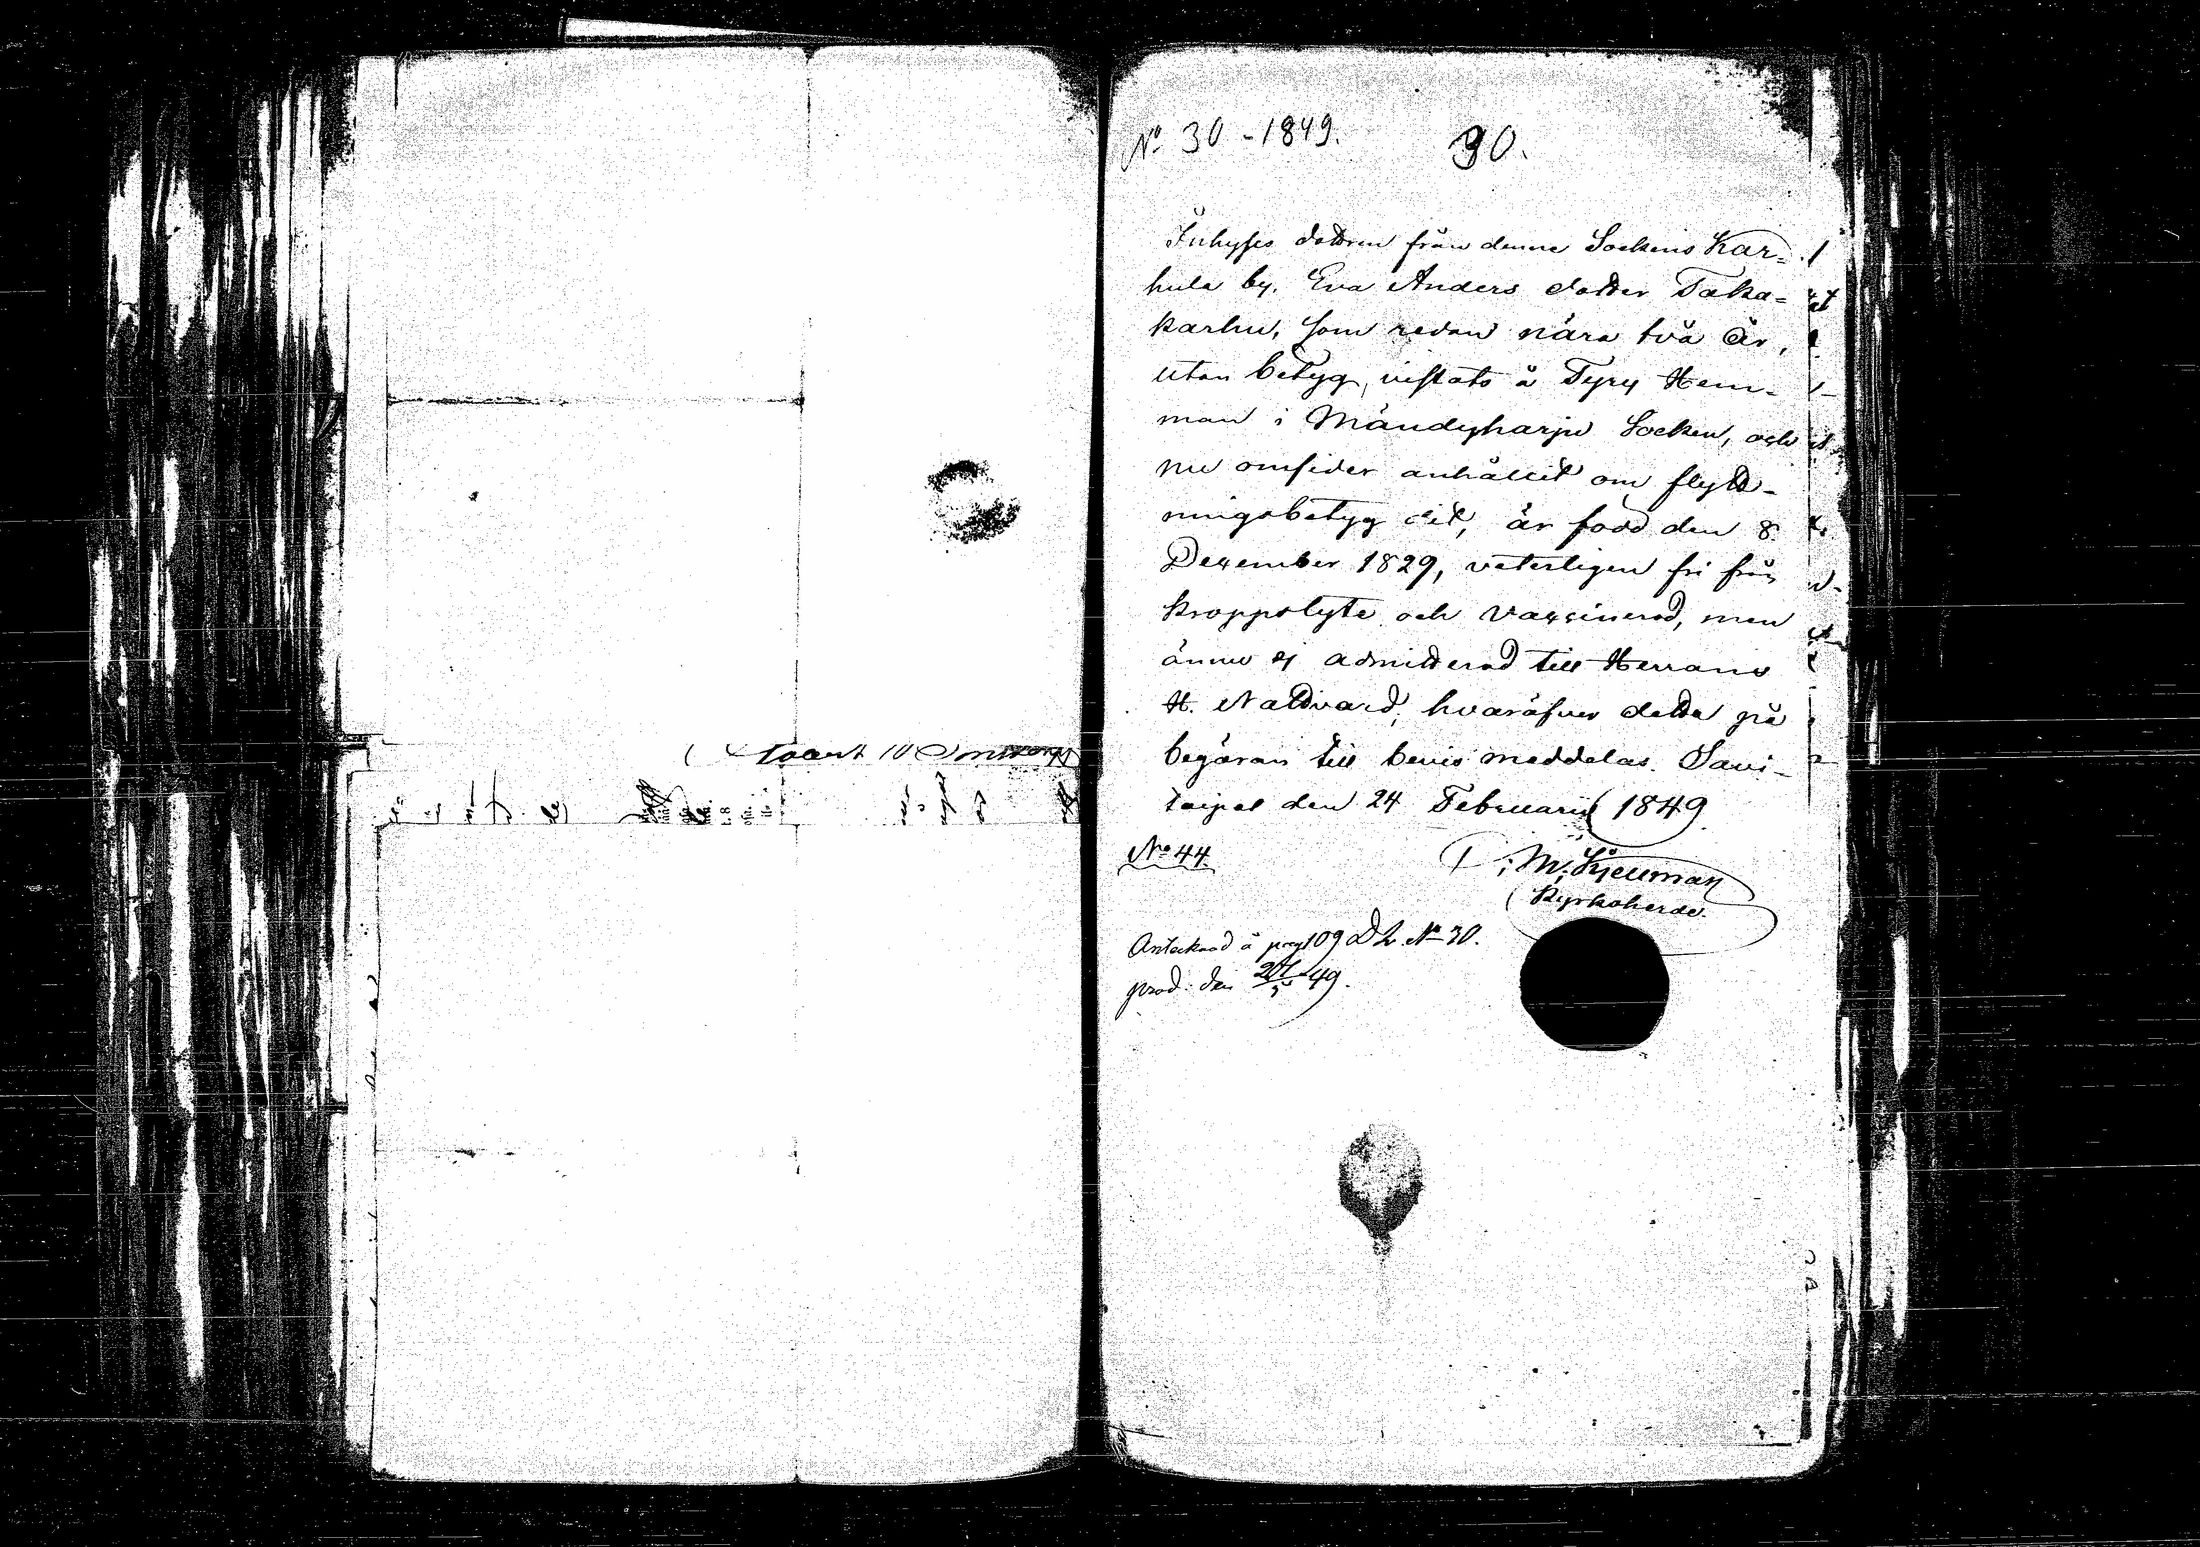 No 30 - 1849.
30.
Inhyses dottren från denne Sockens Kar=
hula by. Eva Anders dotter Taka=
karhu, som redan nära två år,
utan betyg, vistats å Tyry Hem-
man i Mändyharju Socken, och
nu omsider anhållit om flytt-
ningsbetyg dit, är född den 8
December 1829, veterligen fri från
kroppslyte och vaccinerad, men
ännu ej admitterad till Herrans
H. Nattvard, hvaröfver detta på
begäran till bevis meddelas. Savi-
taipal den 24 Februarii 1849
No 44.
M. Kjellman
Kyrkoherde.
Antecknad å pag 109 D 2. No 30.
prod. den 49.